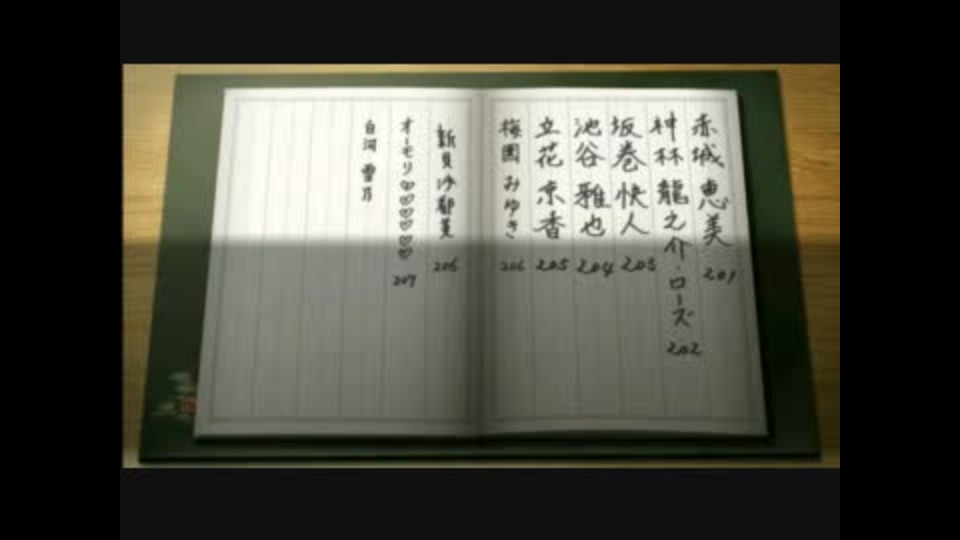 赤城 恵美 201
神林 龍之介・ローズ 202
坂巻 快人 203
池谷 雅也 204
立花 京香 205
梅園 みゆき 206
新見 沙都美 206
オーモリ♡♡♡♡♡ 207
白河 雪乃